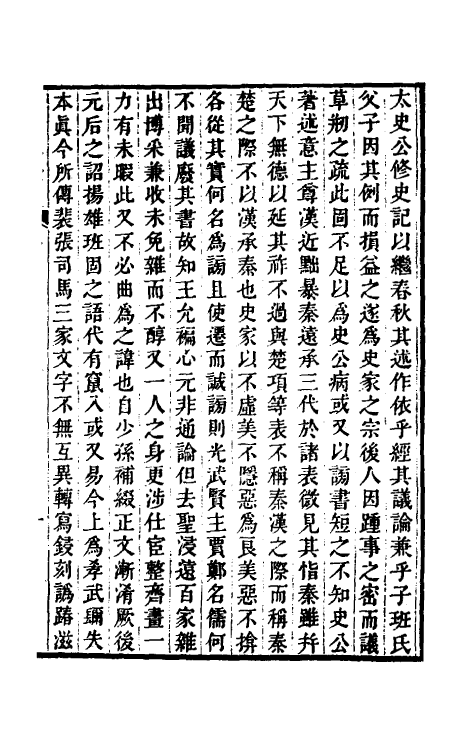 太史公修史記以繼春秋其述作依乎經其議論兼乎子班氏
父子因其例而損益之遂爲史家之宗後人因踵事之密而議
草刱之疏此固不足以爲史公病或又以謗書短之不知史公
著述意主尊漢近黜暴秦遠承三代於諸表微見其恉秦雖幷
天下無德以延其祚不過與楚項等表不稱秦漢之際而稱秦
楚之際不以漢承秦也史家以不虛美不隱惡爲良美惡不揜
各從其實何名爲謗且使遷而誠謗則光武賢主賈鄭名儒何
不聞議廢其書故知王允褊心元非通論但去聖浸遠百家雜
出博采兼收未免雜而不醇又一人之身更涉仕宦整齊畫一
力有未暇此又不必曲爲之諱也自少孫補綴正文漸淆厥後
元后之詔揚雄班固之語代有竄入或又易今上爲孝武彌失
本眞今所傳裴張司馬三家文字不無互異轉寫鋟刻譌踳滋